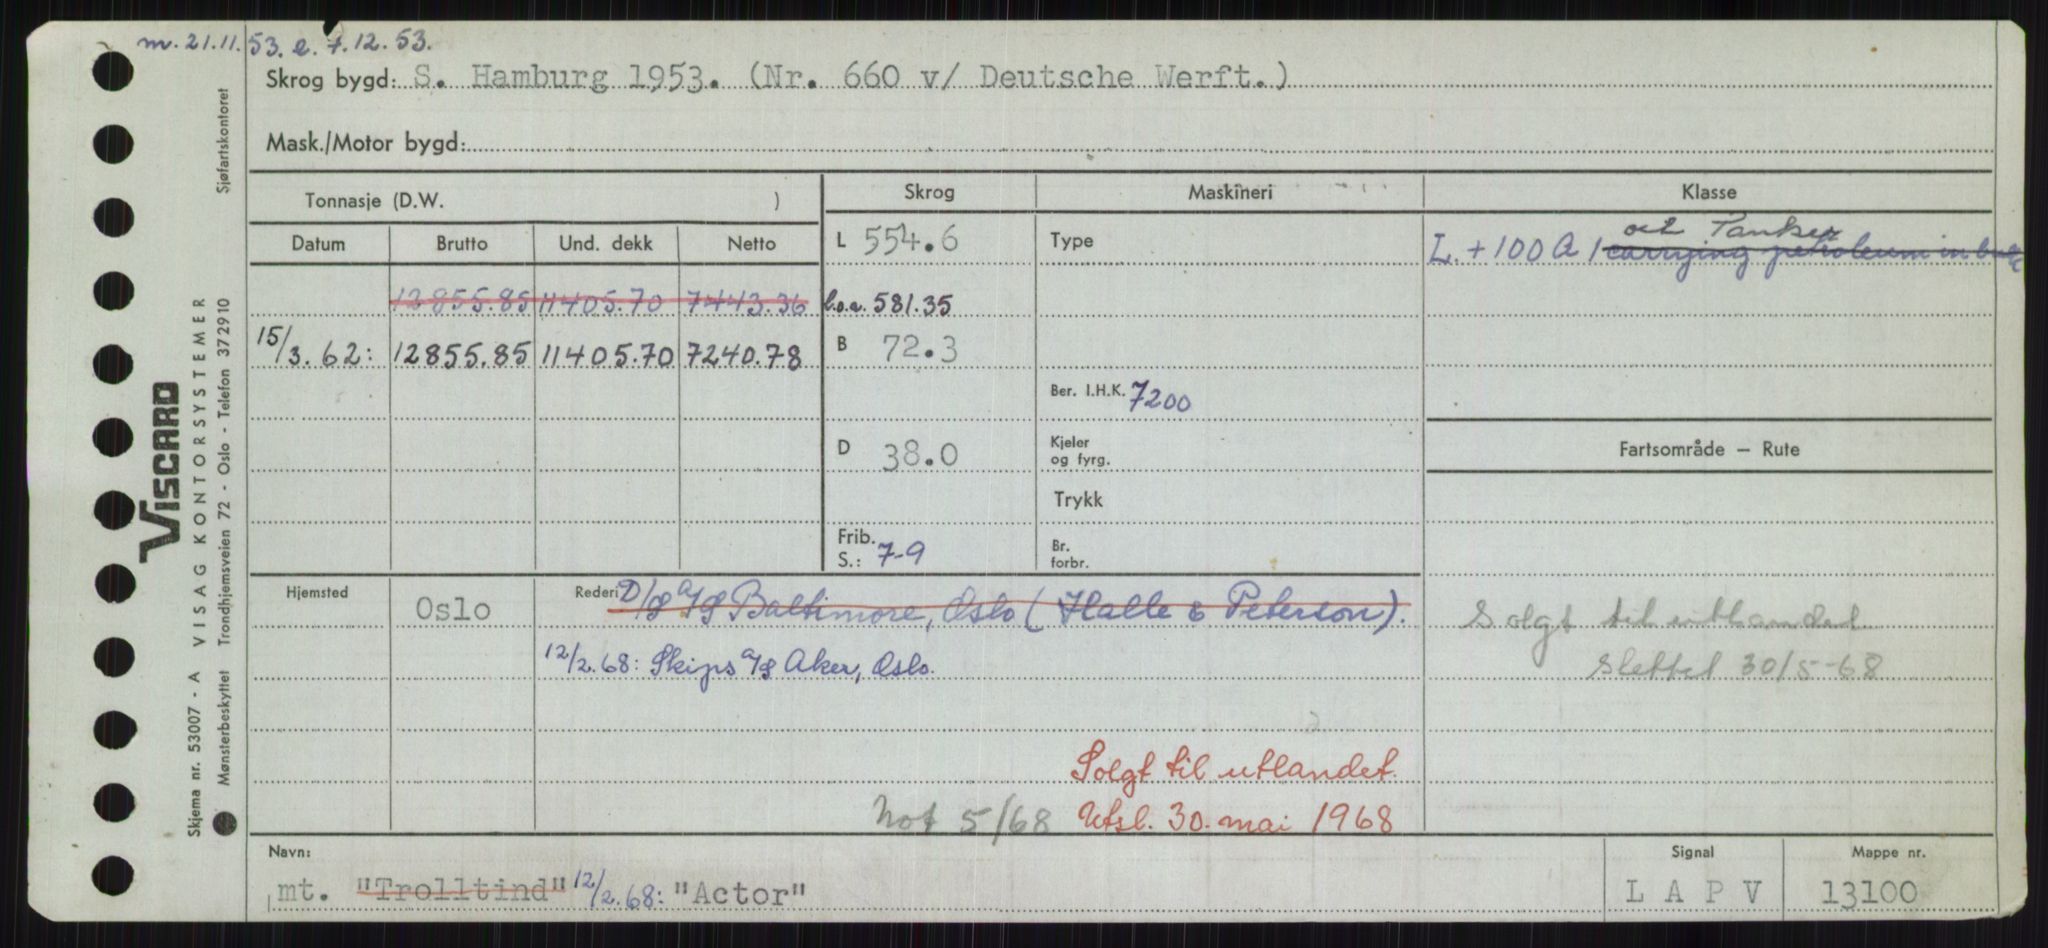 m. 21.11.53. e. 7.12.53.
Skrog bygd: S. Hamburg 1953. (Nr. 660 v/ Deutsche Werft.)
Mask./Motor bygd:
Tonnasje (D.W. )
Skrog
Maskineri
Klasse
Datum Brutto Und. dekk Netto
L 554.6
Type
oil Tanker
L. +100 A 1 carrying petroleum in bulk
12855.85 11405.70 7443.36
l.o.a. 581.35
15/3.62: 12855.85 11405.70 7240.78
B 72.3
Ber. I.H.K. 7200
D 38.0
Kjeler
og fyrg.
Fartsområde – Rute
Trykk
Frib.
S.: 7-9
Br.
forbr.
Hjemsted Oslo
Rederi D/S A/S Baltimore, Oslo (Halle & Peterson).
12/2.68: Skips A/S Aker, Oslo.
Solgt til utlandet
Slettet 30/5-68
Solgt til utlandet.
Not 5/68 Utsl. 30. mai 1968
Navn: mt. "Trolltind" 12/2.68: "Actor"
Signal
L A P V
Mappe nr.
13100
VISCARD
VISAG KONTORSYSTEMER
Skjema nr. 53007 - A
Mønsterbeskyttet
Trondhjemsveien 72 - Oslo - Telefon 372910
Sjøfartskontoret